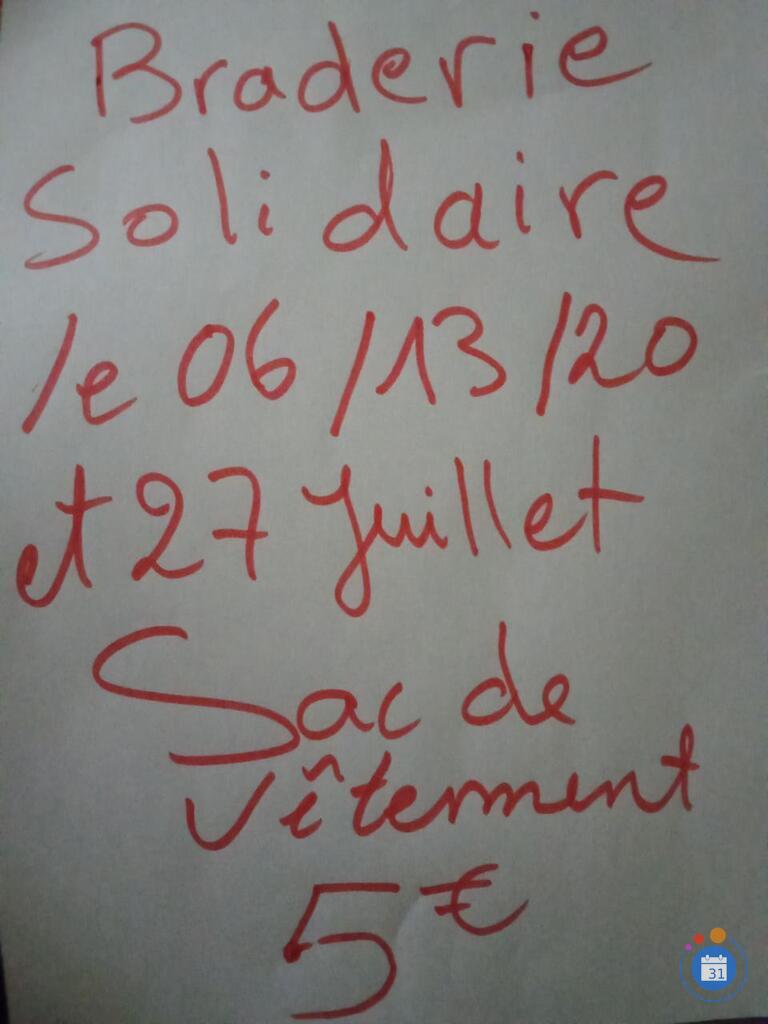 Braderie
Solidaire
le 06/13/20
et 27 Juillet
Sac de
vêtement
5€
31